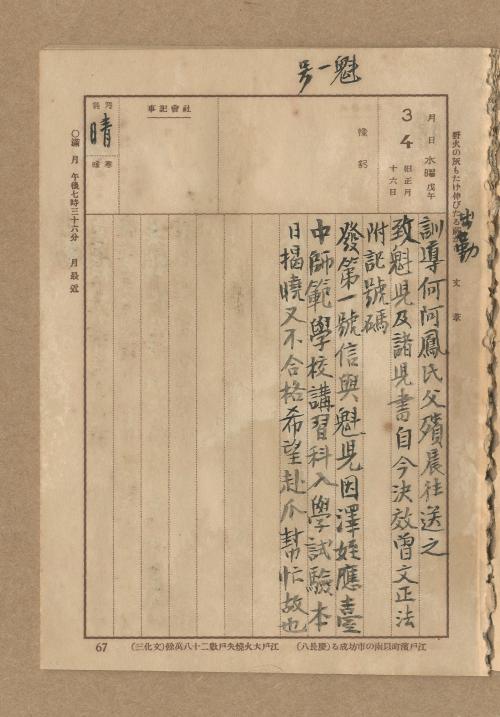 魁一号
野火の灰もたけ伸びたる
文章
出勤
3月4日 水曜 戊午
旧正月十六日
豫記
社會記事
天気
晴
寒暖
訓導何阿鳳氏父殯晨往送之
致魁兒及諸兒書自今決效曾文正法
附記號碼
發第一號信與魁兒因澤姪應臺
中師範學校講習科入學試驗本
日揭曉又不合格希望赴爪幫忙故也
〇滿月 午後七時三十六分 月最近
江戸濱町以南の市坊成る(慶長八)
江戸大火燒失戸數二十八萬餘(文化三)
67